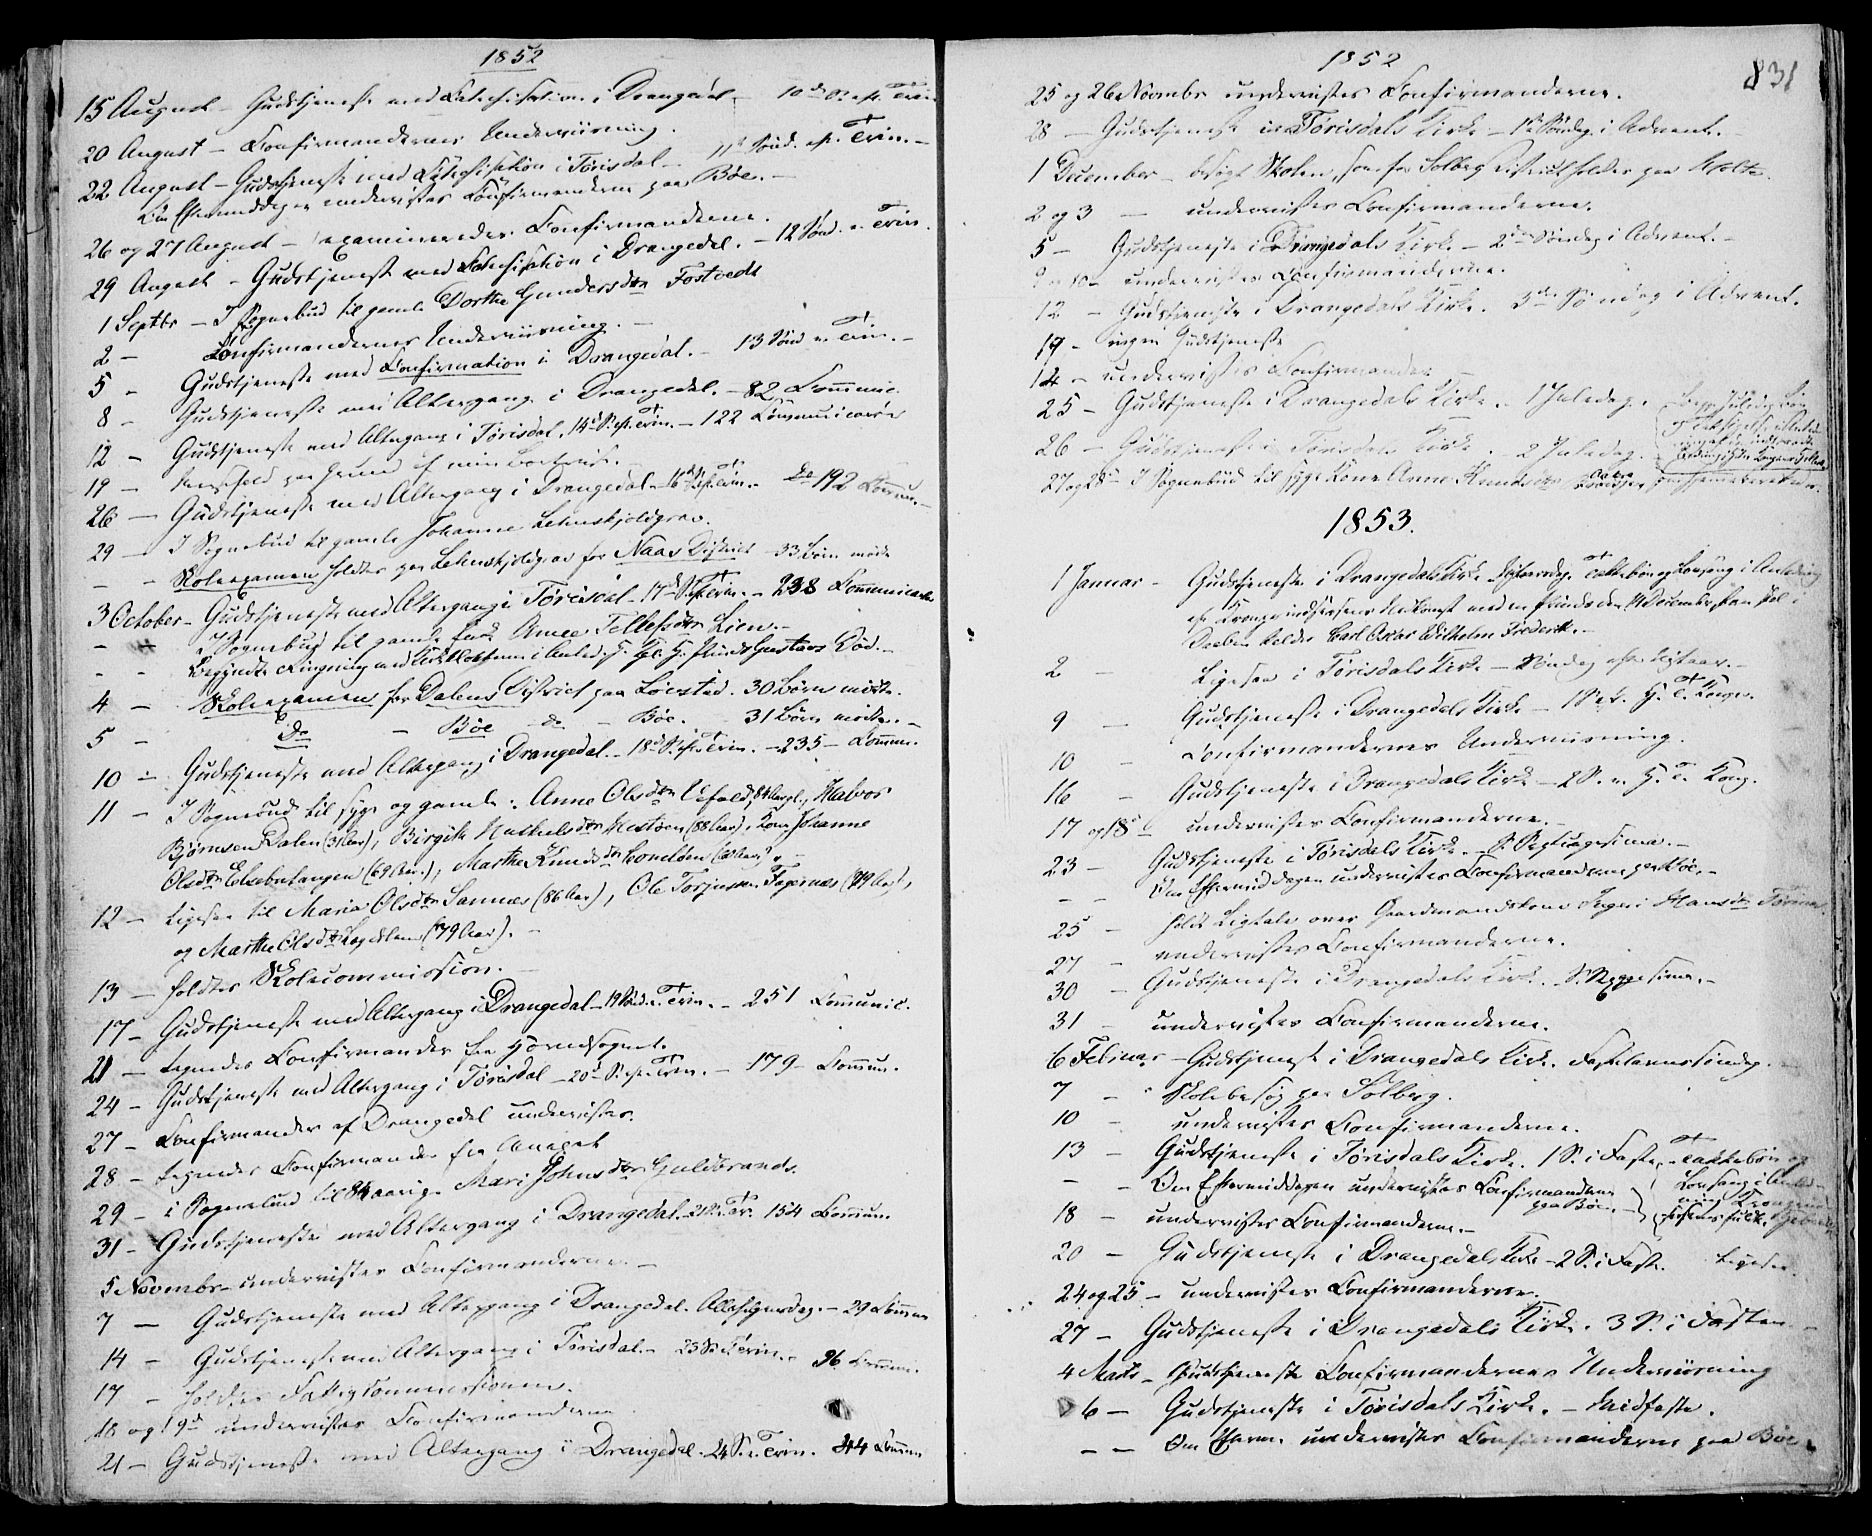 1852
15 August - Gudstjeneste med Catechisation i Drangedal - 10de S. ef. Trin.
20 August - Confirmandernes Underviisning.
22 August - Gudstjeneste med Catechisation i Tørisdal - 11te Sønd. ef. Trin. -
Om Eftermiddagen undervistes Confirmanderne paa Bøe. -
26 og 27 August - examineredes Confirmanderne.
29 August - Gudstjeneste med Catechisation i Drangedal. - 12 Sønd. e. Trin.
1 Septbr - I Sognebud til gamle Dorthe Gundersdtr Tostvedt
2 - Confirmandernes Underviisning. -
5 - Gudstjeneste med Confirmation i Drangedal. - 13 Sønd e. Trin. -
8 - Gudstjeneste med Altergang i Drangedal. - 82 Commnic.
12 - Gudstjeneste med Altergang i Tørisdal. 14de S. ef. Trin. - 122 Communicanter
19 - Messefald paa Grund af min
26 - Gudstjeneste med Altergang i Drangedal - 16de S. ef. Trin. - 192 Commun. -
29 - I Sognebud til gamle Johanne Lehnskjoldgrav.
- - Skoleexamen holdtes paa Lehnskjoldgrav for Naas District - 33 Børn mødte
3 October - Gudstjeneste med Altergang i Tørisdal - 17de S. ef. Trin. - 238 Communicanter
- - I Sognebud til gamle Enke Anne Tellefsdtr Lien. -
- - Begyndte Ringning med Kirkeklokkerne i Anledn. af Kgl. H. Prinds Gustavs Død. -
4 - Skoleexamen for Dalens District paa Loestad. 30 Børn mødte.
5 - Do - Bøe do - Bøe. - 31 Børn mødte. -
10 - Gudstjeneste med Altergang i Drangedal - 18de S. ef. Trin. - 235 - Commun.
11 - I Sognebud til syge og gamle: Anne Olsdtr Vefald, 84 Aar gl., Halvor
Bjørnsen Dalen (31 Aar), Birgith Mathelsdtr Mostøen (88 Aar), Kone Johanne
Olsdtr Elsebutangen (69 Aar), Marthe Knudsdtr (60 Aar),
12 - Ligesaa til Maria Olsdtr Sannæs (86 Aar), Ole Torjusen Fagernæs (89 Aar),
og Marthe Olsdtr (79 Aar). -
13 - holdtes Skolecommission. -
17 - Gudstjeneste med Altergang i Drangedal - 19 Sønd. e. Trin. - 251 Communic.
21 - Confirmander fra Hovedsognet.
24 - Gudstjeneste med Altergang i Tørisdal - 20de S. ef. Trin. - 179 - Commun.
27 - Confirmander af Drangedal undervistes.
28 - Confirmander fra Annexet
29 - i Sognebud til 84 aarige Mari Johnsdtr Guldbrands.
31 - Gudstjeneste med Altergang i Drangedal. 21 S. e. Tr. 154 Commun.
5 Novembr - undervistes Confirmanderne. -
7 - Gudstjeneste med Altergang i Drangedal. Allehelgensdag. - 29 Commun
14 - Gudstjeneste med Altergang i Tørisdal. - 23 S. e. Trin. - 96 Commun.
17 - holdtes Fattigcommissionen.
18 og 19de undervistes Confirmanderne
21 - Gudstjeneste med Altergang i Drangedal. 24 S. e. Trin. 44 Commun
1852
831
25 og 26 Novembr undervistes Confirmanderne.
28 - Gudstjeneste i Tørisdals Kirke - 1ste Søndag i Advent. -
1 December - besøgt Skolen, som for Solberg District holdes paa Molte.
2 og 3 - undervistes Confirmanderne.
5 - Gudstjeneste i Drangedals Kirke - 2den Søndag i Advent. -
9 og 10 - undervistes Confirmanderne.
12 - Gudstjeneste i Drangedals Kirke. 3die Søndag i Advent.
19 - ingen Gudstjeneste
14 - undervistes Confirmander
25 - Gudstjeneste i Drangedals Kirke. - 1 Juledag.
26 - Gudstjeneste i Tørisdals Kirke. - 2 Juledag.
27 og 28de I Sognebud til syge Kone Anne
1853.
1 Januar - Gudstjeneste i Drangedals Kirke Nytaarsdag. Takkebøn og Lovsang i Anledning
af Kronprindsessens Nedkomst med en Prinds den 14 December, som i
Daaben kaldes Carl Oscar Wilhelm Frederik. -
2 - Ligesaa i Tørisdals Kirke - Søndag efter Nytaar. -
9 - Gudstjeneste i Drangedals Kirke - 1 S. ef. H. 3 Konger.
10 - Confirmandernes Underviisning.
16 - Gudstjeneste i Drangedals Kirke - 2 S. e. H. 3 Kong.
17 og 18de undervistes Confirmanderne. -
23 - Gudstjeneste i Tørisdals Kirke. - S. Septuagesima. -
- - Om Eftermiddagen undervistes Confirmanderne paa Bøe. -
25 - holdt Ligtale over Gaardmandskone Hansdtr
27 - undervistes Confirmanderne.
30 - Gudstjeneste i Drangedals Kirke. - S. Sexagesima. -
31 - undervistes Confirmanderne.
6 Februar - Gudstjeneste i Drangedals Kirke. Fastelavnssøndag.
7 - Skolebesøg paa Solberg.
10 - undervistes Confirmanderne.
13 - Gudstjeneste i Tørisdals Kirke. 1 S. i Faste, - Takkebøn og
Lovsang i Anled-
- - Om Eftermiddagen undervistes Confirmanderne
paa Bøe. -
18 - undervistes Confirmanderne. -
20 - Gudstjeneste i Drangedals Kirke - 2 S. i Faste. Ligesaa.
24 og 25 - undervistes Confirmanderne.
27 - Gudstjeneste i Drangedals Kirke. 3 S. i Fasten. -
4 Marts - Confirmandernes Underviisning
6 - Gudstjeneste i Tørisdals Kirke. - Midfaste.
- - Om Efterm. undervistes Confirmanderne paa Bøe.